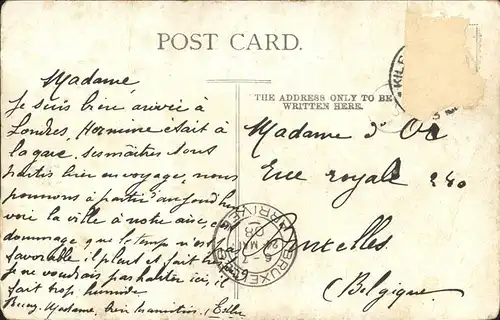 POST CARD.
THE ADDRESS ONLY TO BE
WRITTEN HERE.
Madame
Je suis bien arrivée à
Londres, Hermine était à
la gare, ses maîtres sont
partis hier en voyage, nous
pouvons à partir d'aujourd'hui
voir la ville à notre aise,
dommage que le temps n'est pas
favorable, il pleut et fait
Je ne voudrais pas habiter ici, il
fait trop humide
Madame, bien
Madame d'Or
Rue royale 280
Bruxelles
(Belgique)
KIL
BRUXELLES
6-
24 MAI
08